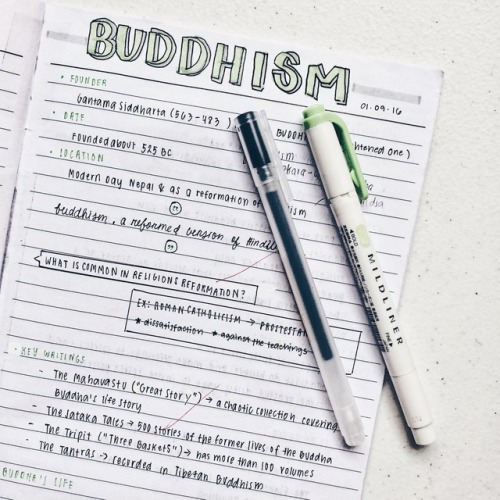 BUDDHISM
01.09.16
• FOUNDER
Gantama Siddharta (563-483) BUDDH htened one)
• DATE
Founded about 525 BC
• LOCATION
Modern Day Nepal & as a reformation of ism
buddhism, a reformed version of Hindu
WHAT IS COMMON IN RELIGIONS REFORMATION?
EX: ROMAN CATHOLICISM → PROTESTA
* dissatisfaction * against the teachings
• KEY WRITINGS
- The Mahavastu ("Great Story") → a chaotic collection covering
Buddha's life story
- The Jataka Tales → 500 stories of the former lives of the Buddha
- The Tripit ("Three Baskets") → has more than 100 volumes
- The Tantras → recorded in Tibetan Buddhism
BUDDHA'S LIFE
MILDLINER